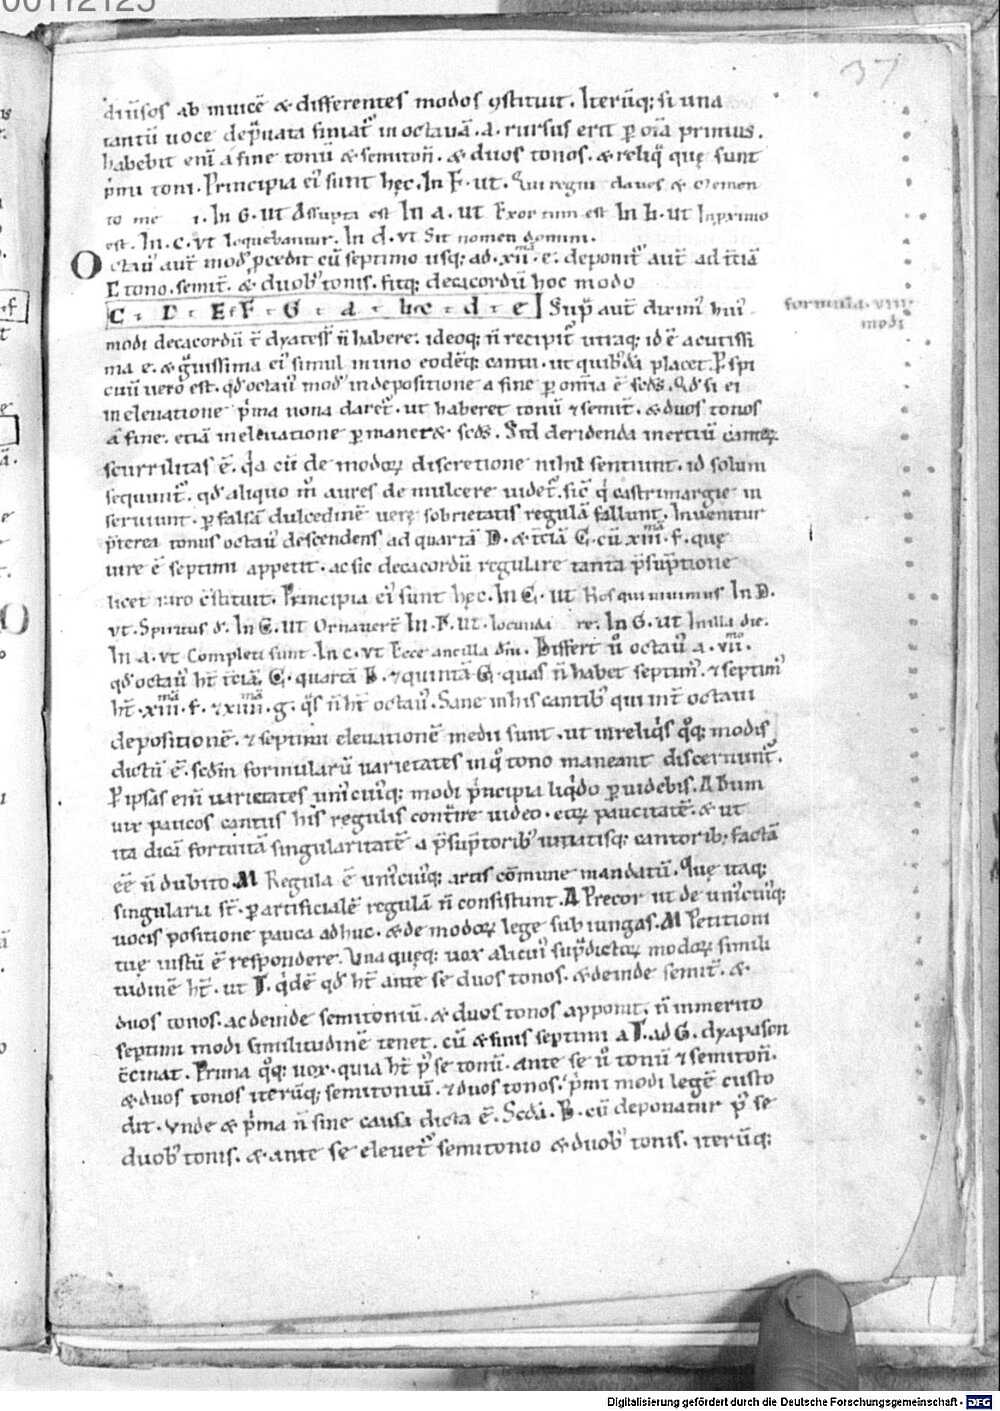 00112125
37
diu̅sos ab inuice̅ & differentes modos ꝯstituit. Iteru̅q; si una
tantu̅ uoce dep̱uata finiat᷑ in octaua̅ .a. rursus erit ꝑ oi̅a primus.
habebit eni̅ a fine tonu̅ & semiton̅. & duos tonos. & reliq̅ quę sunt
p̅mi toni. Principia ei᷒ sunt hęc. In F. ut. Qui regni claues & Clemen
to me i. In G. ut Assupta est In a. ut Exor tum est In h. ut In primo
est. In. c. vt loquebantur. In d. vt Sit nomen domini.
Octau᷒ aut̅ mod᷒ p̱cedit cu̅ septimo usq; ad .xii̅.ma e. deponit᷑ aut̅ ad t̅cia̅
C tono. semit̅. & duob᷒ tonis. fitq; decacordu̅ hoc modo
C t D t E s F t G t a t h s c t d t e Sup̱ aut̅ dicim᷒ hui᷒
formula. viii.
modi
modi decacordu̅ t̅ dyatess̅ n̅ habere. ideoq; n̅ recipit᷑ utraq; id e̅ acutissi
ma e. & g̱uissima ei᷒ simul in uno eode̅q; cantu. ut quib᷒da̅ placet. P̱spi
cuu̅ uero est. qd̅ octau᷒ mod᷒ in depositione a fine ꝑ om̅ia e̅ scd̅s. Qd̅ si ei
in eleuatione p̅ma uona daret᷑. ut haberet tonu̅ ⁊ semit̅. & duos tonos
a fine. etia̅ in eleuatione ꝑ maner& scd̅s. Sed deridenda inertiu̅ cantoꝝ
scurrilitas e̅. q̅a cu̅ de modoꝝ discretione nihil sentiunt. id solum
sequunt᷑. qd̅ aliquo m̅ aures de mulcere uidet᷑. sic̅ q̅ castrimargie in
seruiunt. ꝑ falsa̅ dulcedine̅ uerę sobrietatis regula̅ fallunt. Inuenitur
p̅terea tonus octau᷒ descendens ad quarta̅ D. & t̅cia̅ C. cu̅ xiii.ma f. quę
iure e̅ septimi appetit. ac sic decacordu̅ regulare tanta p̅su̅ptione
licet raro c̅stituit. Principia ei᷒ sunt hęc. In C. ut Nos qui uiuimus In D.
vt. Spiritus d̅. In E. ut Ornauer̅t In. F. ut. Iocunda re. In G. ut In illa die.
In a. vt Completi sunt. In c. vt Ecce ancilla dn̅i. Differt u̅ octau᷒ a .vii.mo
qd̅ octau᷒ ht̅ t̅cia̅. C. quarta̅ D. ⁊ quinta̅ E. quas n̅ habet septim᷒. ⁊ septim᷒
ht̅ .xiii.ma f. ⁊ xiiii.ma g. q̅s n̅ ht̅ octau᷒. Sane in his cantib᷒ qui int̅ octaui
depositione̅. ⁊ septimi eleuatione̅ medii sunt. ut in reliq̅s q̊q; modis
dictu̅ e̅. scd̅m formularu̅ uarietates in q̊ tono maneant discernunt᷑.
P̱ ipsas eni̅ uarietates uni᷒cui᷒q; modi p̅ncipia liq̅do ꝑuidebis. A Dum
uix paucos cantus his regulis cont̅ire uideo. eoꝝ paucitate̅. & ut
ita dica̅ fortuita̅ singularitate̅ a p̅su̅ptorib᷒ uitiatisq; cantorib; facta̅
ee̅ n̅ dubito. M Regula e̅ uni᷒cui᷒q; artis co̅mune mandatu̅. Quę itaq;
singularia st̅. ꝑ artificiale̅ regula̅ n̅ consistunt. A Precor ut de uni᷒cui᷒q;
uocis positione pauca adhuc. & de modoꝝ lege subiungas. M Petitioni
tuę iustu̅ e̅ respondere. Una quęq; uox alicui᷒ sup̱dictoꝝ modoꝝ simili
tudine̅ ht̅. ut Γ. q̅de̅ qd̅ ht̅ ante se duos tonos. & deinde semit̅. &
duos tonos. ac deinde semitoniu̅. & duos tonos apponit. n̅ inmerito
septimi modi similitudine̅ tenet. cu̅ & finis septimi a Γ. ad G. dyapason
c̅cinat. Prima q̊q; uox. quia ht̅ p᷒ se tonu̅. ante se u̅ tonu̅ ⁊ semiton̅.
& duos tonos iteru̅q; semitoniu̅. ⁊ duos tonos. p̅mi modi lege̅ custo
dit. Vnde & p̅ma n̅ sine causa dicta e̅. Scd̅a. B. cu̅ deponatur p᷒ se
duob᷒ tonis. & ante se eleuet᷑ semitonio & duob᷒ tonis. iteru̅q;
Digitalisierung gefördert durch die Deutsche Forschungsgemeinschaft - DFG